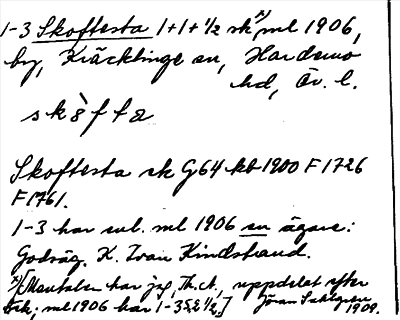 1-3 Skoftesta 1+1+½ sk x) ml 1906,
by, Kräcklinge sn, Hardemo
hd, Ör. l.
Skoftesta sk G64 kb 1900 F1726
F1761.
1-3 har enl. ml 1906 en ägare:
Godsäg. K. Ivar Kindstrand.
x) [Mantalen har jag, Th. A., uppdelat efter
bok; ml 1906 har 1-3 S:a 2½.] Jöran Sahlgren
1909.